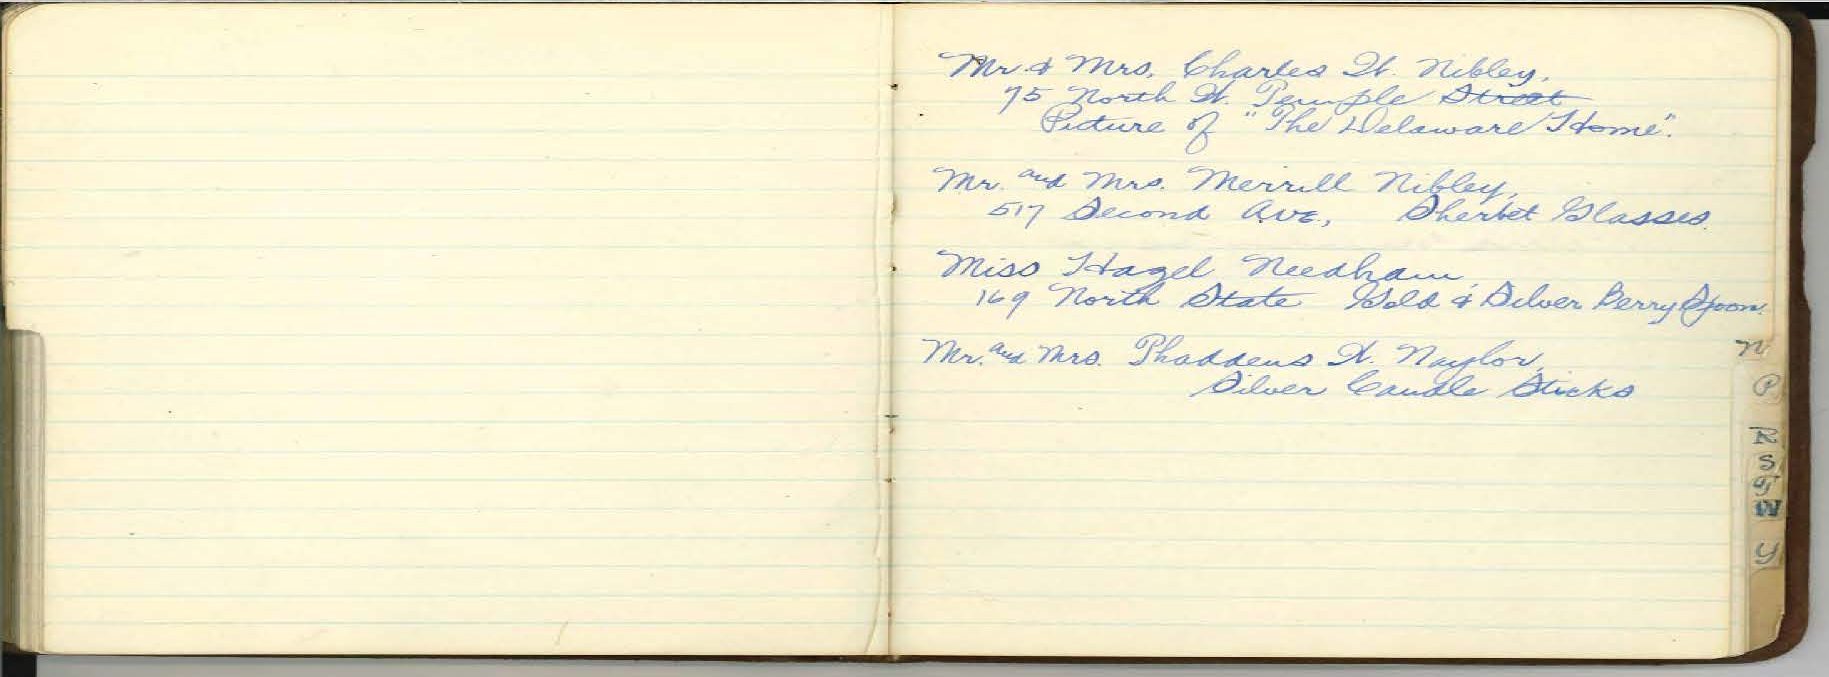 Mr. & Mrs. Charles W. Nibley,
75 North W. Temple Street
Picture of "The Delaware Home".
Mr. and Mrs. Merrill Nibley,
517 Second Ave., Sherbet Glasses.
Miss Hazel Needham,
169 North State Gold & Silver Berry Spoon.
Mr. and Mrs. Thaddeus W. Naylor,
Silver Candle Sticks
N
P
R
S
T
W
Y